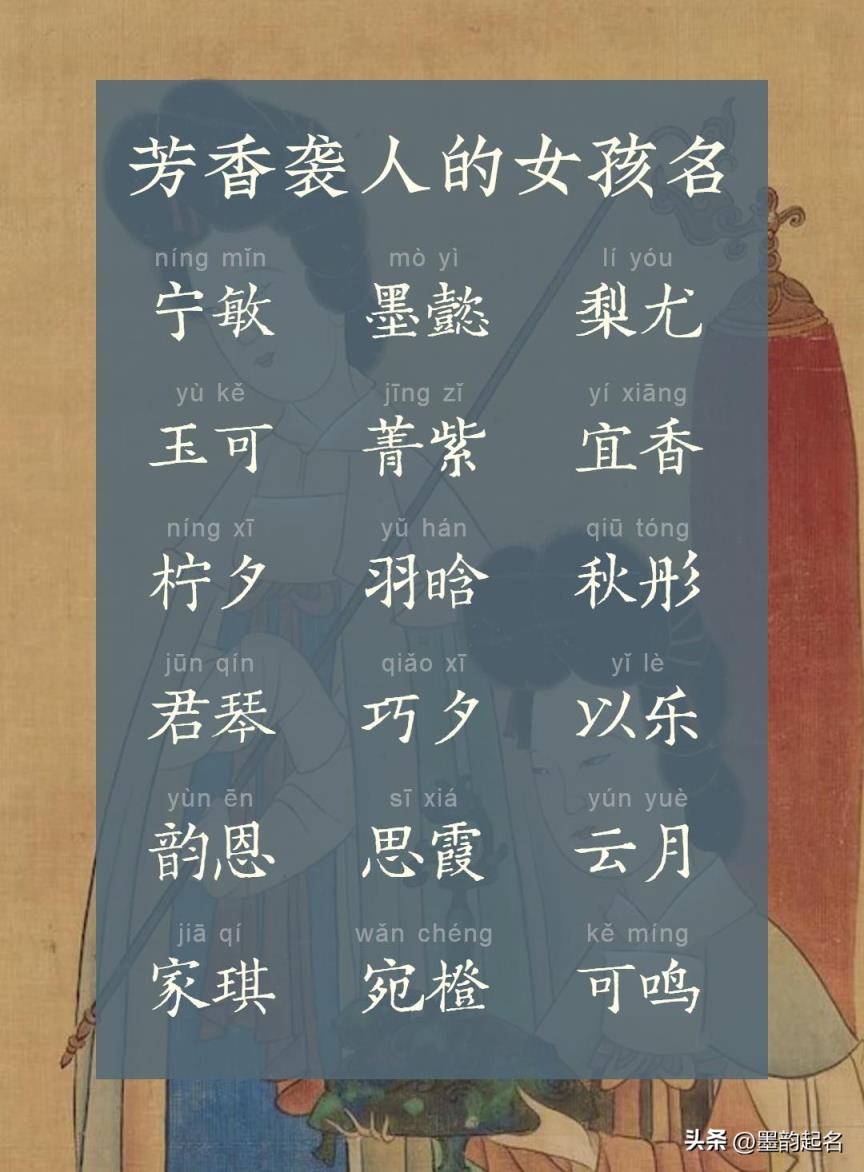 芳香袭人的女孩名
níng mǐn mò yì lí yóu
宁敏 墨懿 梨尤
yù kě jīng zǐ yí xiāng
玉可 菁紫 宜香
níng xī yǔ hán qiū tóng
柠夕 羽晗 秋彤
jūn qín qiǎo xī yǐ lè
君琴 巧夕 以乐
yùn ēn sī xiá yún yuè
韵恩 思霞 云月
jiā qí wǎn chéng kě míng
家琪 宛橙 可鸣
头条 @墨韵起名